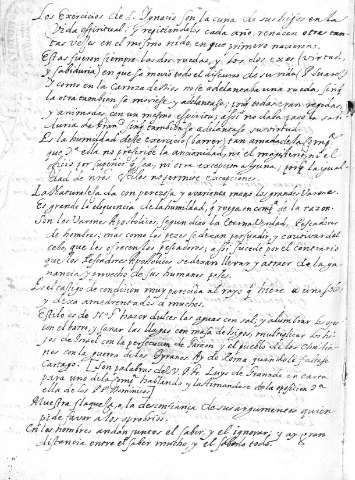 Los Exercicios de S. Ignacio son la cuna de sus hijos en la
vida espiritual, y repitiendolos cada año, renacen otra tan-
tas veses en el mesmo nido, en que primero nacieron.
Estas fueron siempre las dos ruedas, y los dos exes, virtud,
y sabiduria, en que se movió todo el discurso de su vida, P. Suares
Y como en la Carroza de Dios no se adelantava una rueda, sin q̃
la otra tambien se moviese, y adelantase, porq̃ todas eran regidas,
y animadas con un mesmo espiritu; assi no daba paso la sabi-
duria de Fran.co sin q̃ tambien se adelantase su virtud.
Es la humildad deste exercicio (barrer) tan amada de la Comp.a
que
oficio por superior q̃ sea, ni otra excepcion alguna, porq̃ la igual-
dad de nros no permite excepciones.
La Naturaleza da con peresosa, y avarienta mano los grandes Varones.
Es grande la eloquencia de la humildad, q̃ ruega en comp.a de la razon.
Son los Varones Apostolicos, segun dixo la Eterna Verdad, Pescadores
de hombres; mas como los peces se dexan persuadir, y cautivar del
cebo, que les ofrecen los pescadores; assi sucede por el contrario
que los Pescadores Apostolicos se dexan llevar, y atraer de la ga-
nancia, y provecho de sus humanos peces.
Es el castigo de condicion muy parecida al rayo, q̃ hiere a uno solo,
y dexa amedrentados à muchos.
Estilo es de N. S.r hacer dulces las aguas con sal, y alumbrar los ojos
con el barro, y sanar las llagas con masa de higos, multiplicar los hi-
jos de Israel con la persecucion de Faraon, y el pueblo de los Chris-
nos con la guerra de los Tyranos. Ay de Roma quando le faltase
Cartago. Son palabras del V. P. Fr. Luys de Granada en carta
para uno de la Comp.a hablando, y lastimandose de la oposicion
ella de los PP. Dominicos.
Muestra flaquesa, o la desconfianza de sus argumentos quien
pide favor à los oprobrios.
En los hombres andan juntos el saber, y el ignorar; y ay gran
distancia entre el saber mucho, y el saberlo todo.